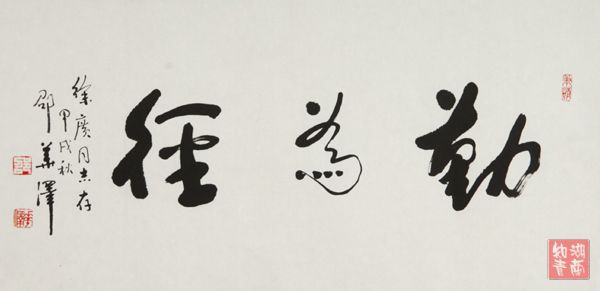 勤為徑
徐廣同志存
甲戌秋
邵華澤
湖南
知青